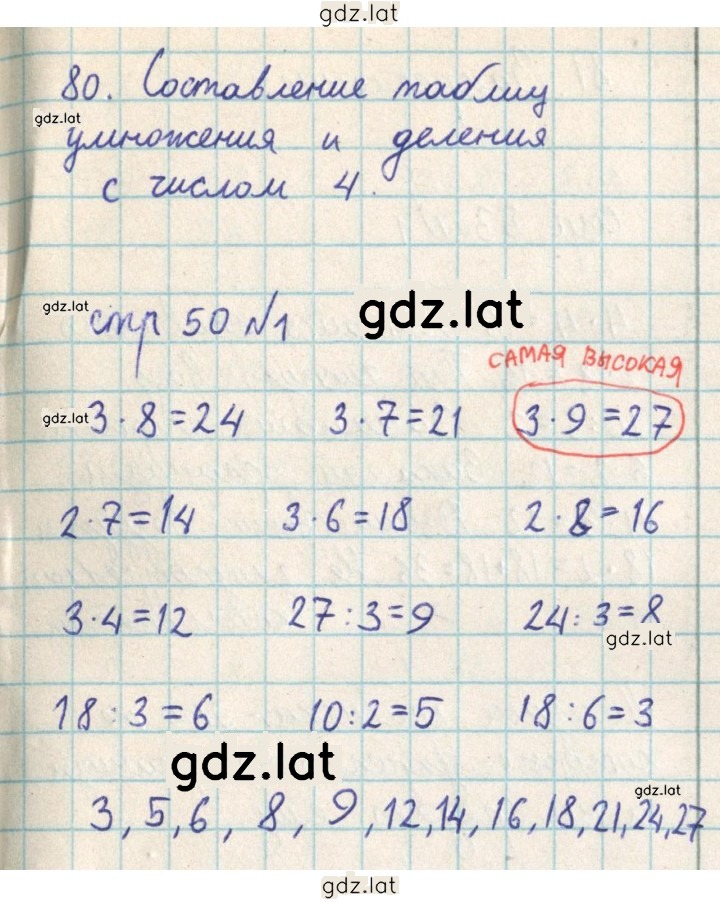 gdz.lat
80. Составление таблиц
gdz.lat
умножения и деления
с числом 4.
gdz.lat стр 50 №1 gdz.lat
САМАЯ ВЫСОКАЯ
gdz.lat 3·8=24 3·7=21 3·9=27
2·7=14 3·6=18 2·8=16
3·4=12 27:3=9 24:3=8
gdz.lat
18:3=6 10:2=5 18:6=3
gdz.lat
gdz.lat
3, 5, 6, 8, 9, 12, 14, 16, 18, 21, 24, 27
gdz.lat